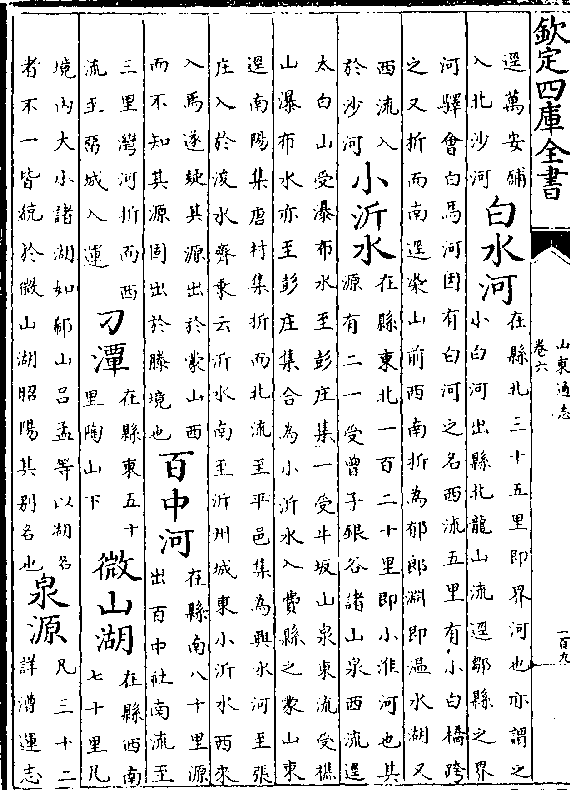 欽定四庫全書
山東通志
卷六
一百九
逕萬安舖
入北沙河
白水河
在縣北三十五里即界河也亦謂之
小白河出縣北龍山流逕鄒縣之界
河驛會白馬河因有白河之名西流五里有小白橋跨
之又折而南逕梁山前西南折為郁郎淵即温水湖又
西流入
於沙河
小沂水
在縣東北一百二十里即小淮河也其
源有二一受曾子銀谷諸山泉西流逕
太白山受瀑布水至彭庄集一受牛坂山泉東流受樵
山瀑布水亦至彭庄集合為小沂水入費縣之蒙山東
逕南陽集唐村集折而北流至平邑集為興水河至張
庄入於浚水齊乗云沂水南至沂州城東小沂水西來
入焉遂疑其源出於蒙山西
而不知其源固出於滕境也
百中河
在縣南八十里源
出百中社南流至
三里灣河折而西
流至彭城入運
刁潭
在縣東五十
里陶山下
微山湖
在縣西南
七十里凡
境内大小諸湖如郗山吕孟等以湖名
者不一皆統於微山湖昭陽其别名也
泉源
凡三十二
詳漕運志